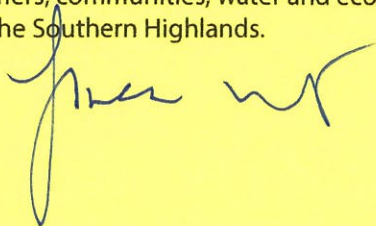 ners, communities, water and eco
he Southern Highlands.